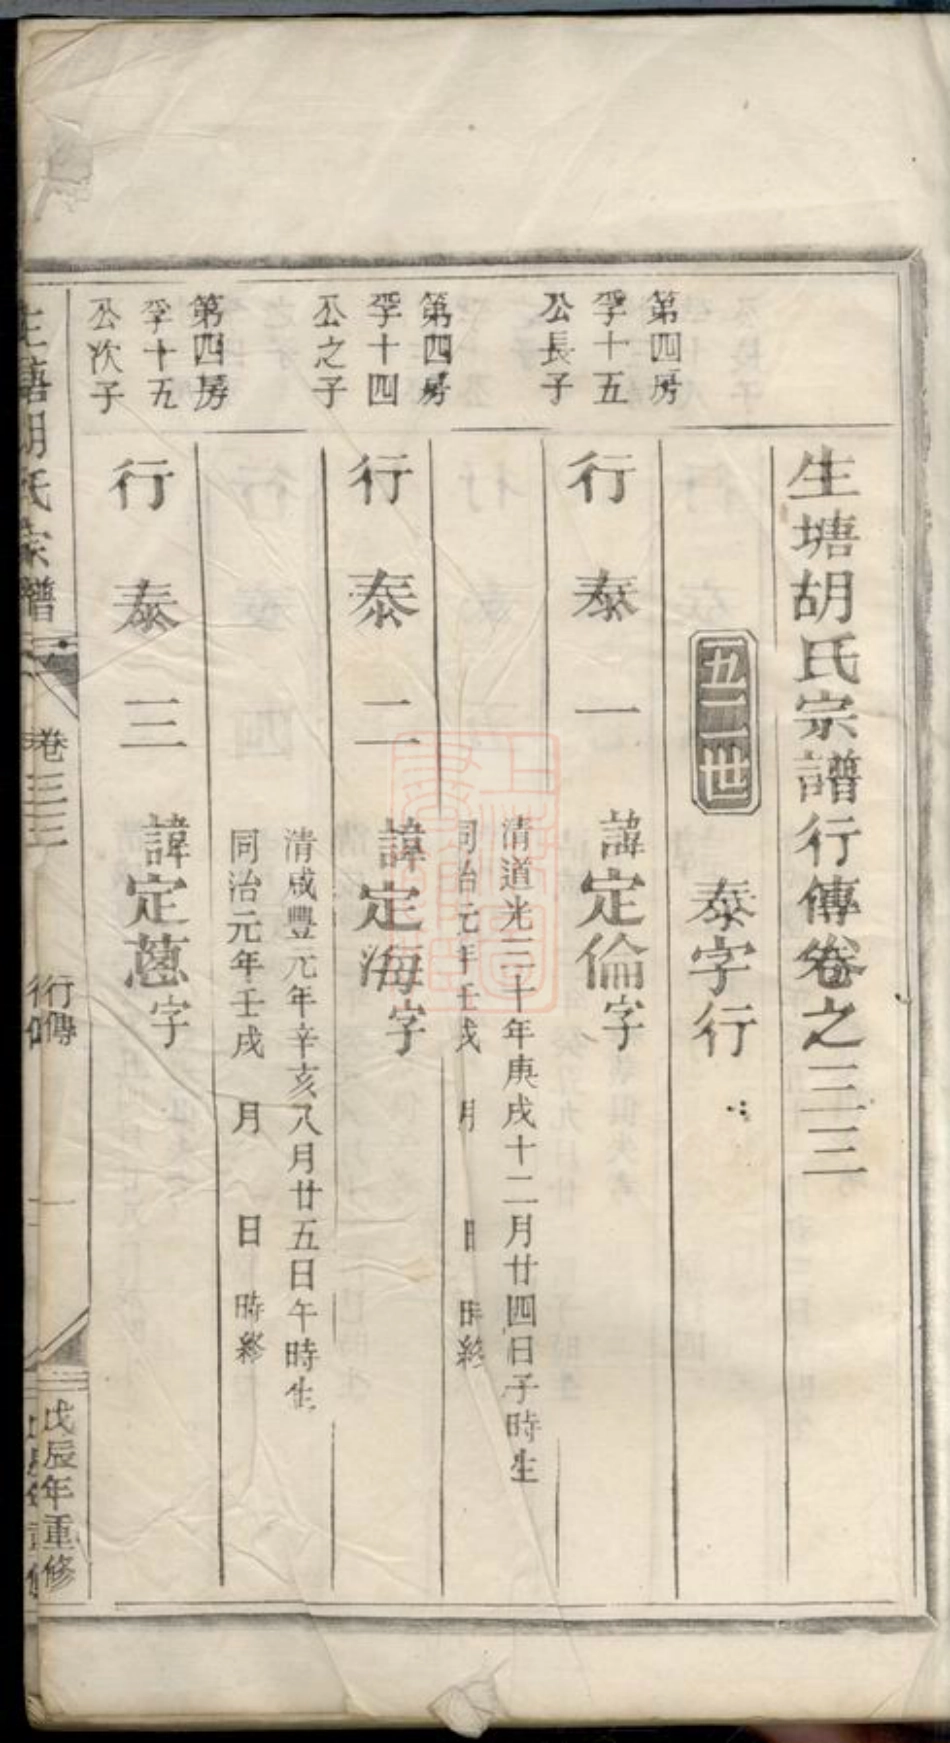 生塘胡氏宗譜行傳卷之三三
五二世 泰字行
第四房
孚十五
公長子
行泰一 諱定倫字
清道光三十年庚戌十二月廿四日子時生
同治元年壬戌 月 日 時終
第四房
孚十四
公之子
行泰二 諱定海字
清咸豐元年辛亥八月廿五日午時生
同治元年壬戌 月 日 時終
第四房
孚十五
公次子
行泰三 諱定蒽字
生塘胡氏宗譜 卷三三 行傳 一 戊辰年重修